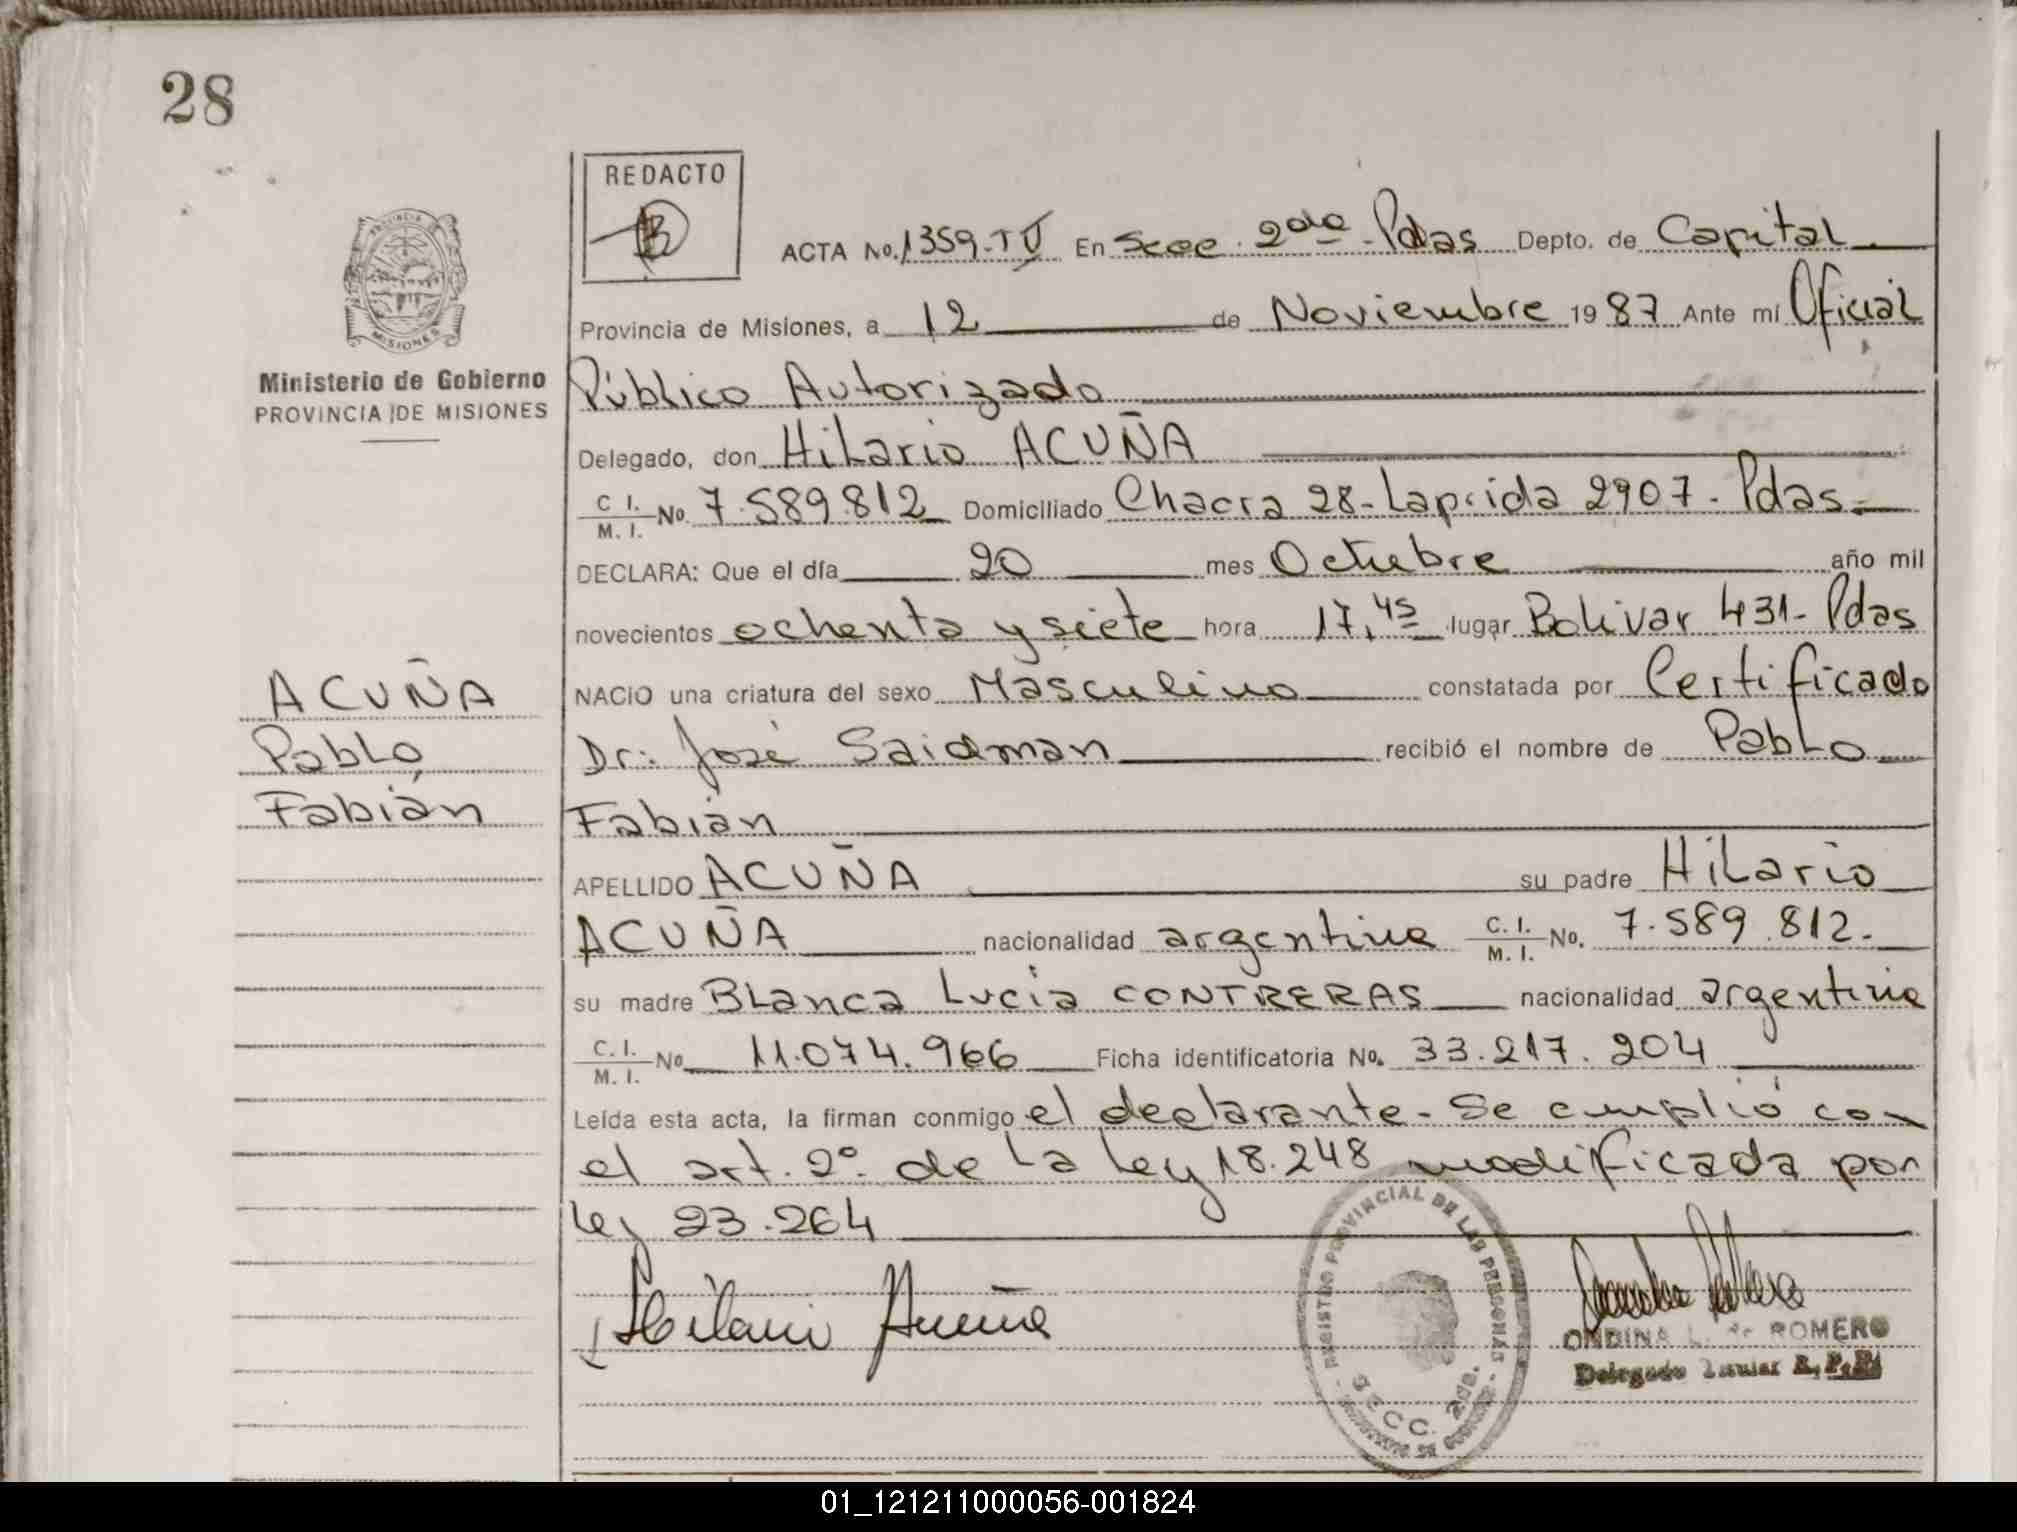 28
REDACTO
ACTA No. 1359-TV En Secc. 2da - Pdas Depto. de Capital
PROVINCIA
MISIONES
Provincia de Misiones, a 12 de Noviembre 1987 Ante mí Oficial
Ministerio de Gobierno
PROVINCIA DE MISIONES
Público Autorizado
Delegado, don Hilario ACUÑA
C. I. / M. I. No. 7.589.812 Domiciliado Chacra 28 - Laprida 2907 - Pdas.
DECLARA: Que el día 20 mes Octubre año mil
novecientos ochenta y siete hora 17,45 lugar Bolivar 431 - Pdas
ACUÑA
Pablo
Fabián
NACIO una criatura del sexo Masculino constatada por Certificado
Dr: José Saidman recibió el nombre de Pablo
Fabián
APELLIDO ACUÑA su padre Hilario
ACUÑA nacionalidad argentina C. I. / M. I. No. 7.589.812.
su madre Blanca Lucía CONTRERAS nacionalidad argentina
C. I. / M. I. No 11.074.966 Ficha identificatoria No. 33.217.204
Leída esta acta, la firman conmigo el declarante - Se cumplió con
el art. 2º de la Ley 18.248 modificada por
ley 23.264
Hilario Acuña
REGISTRO PROVINCIAL DE LAS PERSONAS
SECC. 2da.
ONDINA L. de ROMERO
Delegado Titular R. P. P.
01_121211000056-001824